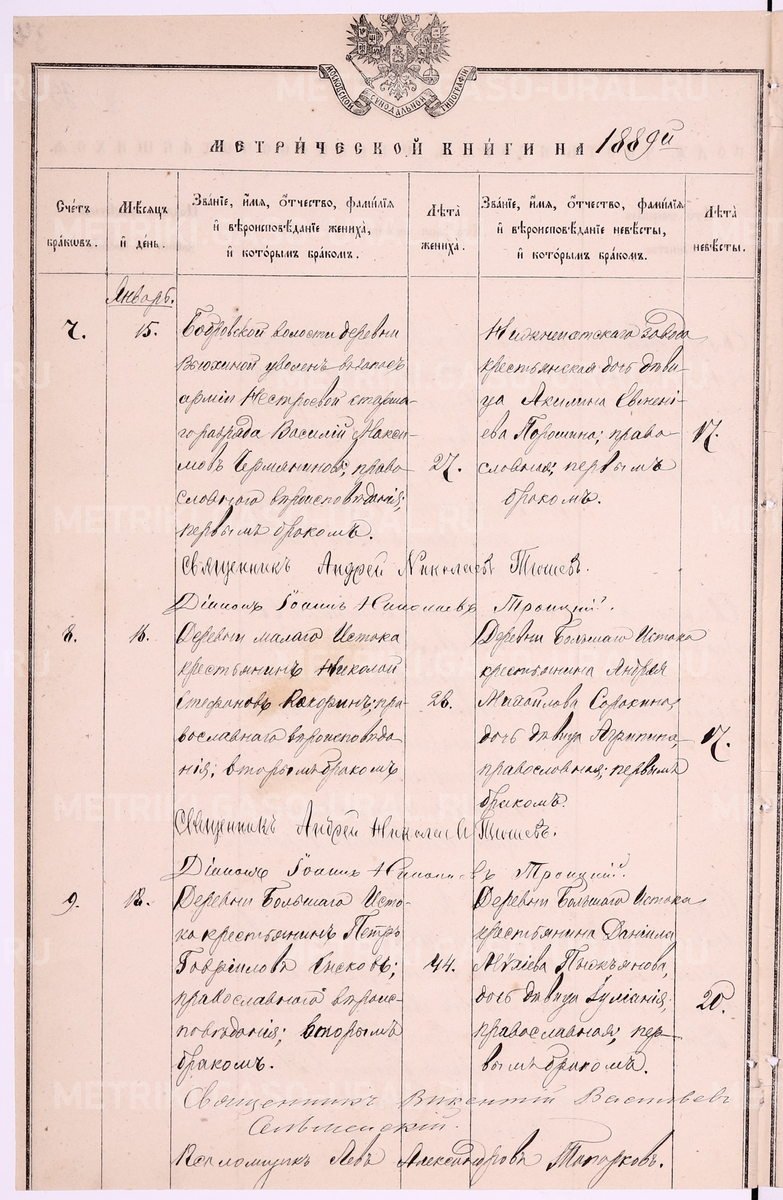 МОСКОВСКОЙ СѴНОДАЛЬНОЙ ТИПОГРАФІИ
МЕТРИ́ЧЕСКОЙ КНИ́ГИ НА 1889й
Сче́тъ бра́ковъ.
Мѣ́сяцъ и҆ де́нь.
Зва́нїе, и҆́мѧ, ѻ҆́тчество, фами́лїѧ и҆ вѣроисповѣ́данїе жениха̀, и҆ кото́рымъ бра́комъ.
Лѣ́та жениха̀.
Зва́нїе, и҆́мѧ, ѻ҆́тчество, фами́лїѧ и҆ вѣроисповѣ́данїе невѣ́сты, и҆ кото́рымъ бра́комъ.
Лѣ́та невѣ́сты.
Январь.
7.
15.
Бобровской волости деревни
Вьюхиной уволен въ запасъ
арміи Нестроевой старша-
го разряда Василій Макси-
мовъ Чермяниновъ; право-
славнаго вѣроисповѣданія;
первымъ бракомъ.
27.
Нижнеисетскаго завода
крестьянская дочь дѣви-
ца Акилина Евгені-
ева Порошина; право-
славная; первымъ
бракомъ.
17.
Священникъ Андрей Николаевъ Тюшевъ.
Діаконъ Іоаннъ Николаевъ Троицкій.
8.
16.
Деревни малаго Истока
крестьянинъ Николай
Стефановъ пра-
вославнаго вѣроисповѣда-
нія; вторымъ бракомъ
26.
Деревни Большаго Истока
крестьянина Андрея
Михайлова Сорокина,
дочь дѣвица Агрипина,
православная; первымъ
бракомъ.
17.
Священникъ Андрей Николаевъ Тюшевъ.
Діаконъ Іоаннъ Николаевъ Троицкій.
9.
18.
Деревни Большаго Исто-
ка крестьянинъ Петръ
Гавріиловъ
православнаго вѣроис-
повѣданія; вторымъ
бракомъ.
44.
Деревни Большаго Истока
крестьянина Даніила
Пьянкова,
дочь дѣвица Іуліанія;
православная; пер-
вымъ бракомъ.
20.
Священникъ Викентій Васильевъ
Псаломщикъ Левъ Александровъ Топорковъ.
METRIKI.GASO-URAL.RU